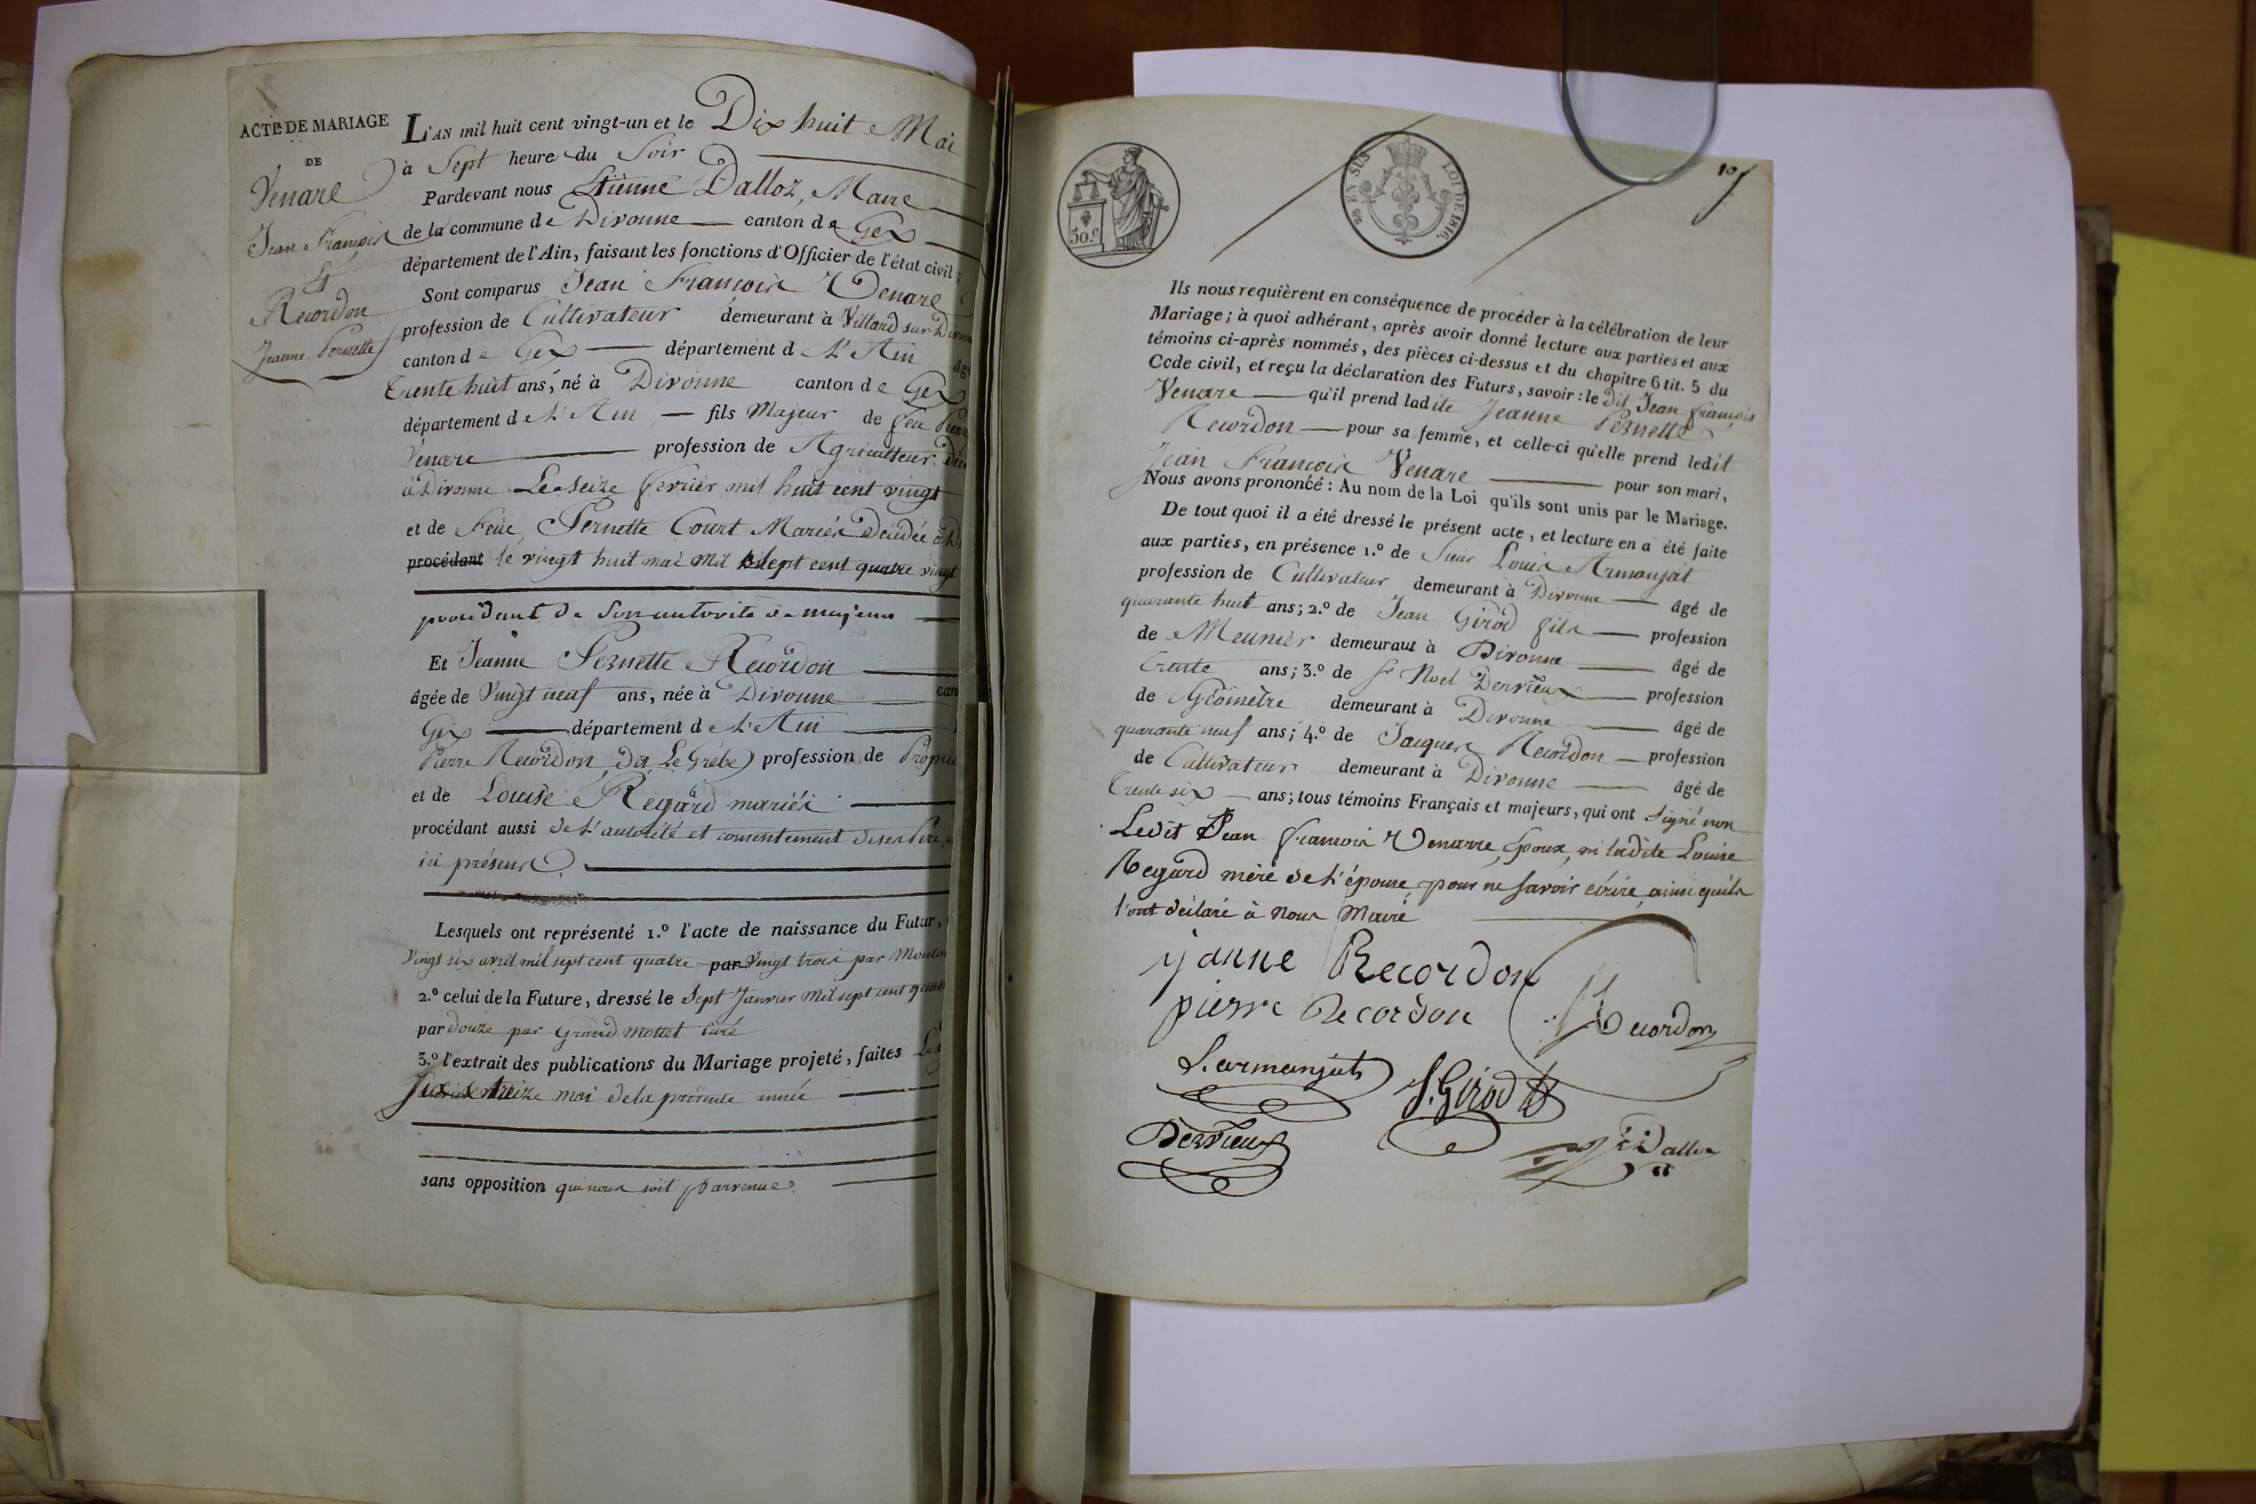 ACTE DE MARIAGE
DE
Venare
Jean François
Et
Recordon
Jeanne Pernette
L'AN mil huit cent vingt-un et le Dix huit Mai
à Sept heure du Soir
Pardevant nous Etienne Dalloz, Maire
de la commune de Divonne canton de Gex
département de l'Ain, faisant les fonctions d'Officier de l'état civil ;
Sont comparus Jean François Venare
profession de Cultivateur demeurant à Villard sur
canton de Gex département d L'Ain
Trente huit ans, né à Divonne canton de Gex
département d L'Ain fils Majeur de feu
Venare profession de Agriculteur
à Divonne Le Seize fevrier mil huit cent vingt
et de Feue Pernette Court Mariés Décédée à
procédant le vingt huit mai mil sept cent quatre vingt
procédant de son autorité de majeur
Et Jeanne Pernette Recordon
âgée de Vingt neuf ans, née à Divonne
Gex département d L'Ain
Pierre Recordon dit Le Grebe profession de
et de Louise Régard mariés
procédant aussi de L'autorité et consentement de ses Père
ici présens
Lesquels ont représenté 1.º l'acte de naissance du Futur,
Vingt six avril mil sept cent quatre par Vingt trois par
2.º celui de la Future, dressé le Sept Janvier Mil sept cent
par douze par Grand mottet curé
3.º l'extrait des publications du Mariage projeté, faites
Six et treize mai de la présente année
sans opposition qui nous soit parvenue.
30.c
30 EN SUS
LOI DE 1816.
10
Ils nous requièrent en conséquence de procéder à la célébration de leur
Mariage ; à quoi adhérant, après avoir donné lecture aux parties et aux
témoins ci-après nommés, des pièces ci-dessus et du chapitre 6 tit. 5 du
Code civil, et reçu la déclaration des Futurs, savoir : le dit Jean françois
Venare qu'il prend ladite Jeanne Pernette
Recordon pour sa femme, et celle-ci qu'elle prend ledit
Jean François Venare pour son mari,
Nous avons prononcé : Au nom de la Loi qu'ils sont unis par le Mariage.
De tout quoi il a été dressé le présent acte, et lecture en a été faite
aux parties, en présence 1.º de Sieur Louis Armanjat
profession de Cultivateur demeurant à Divonne âgé de
quarante huit ans ; 2.º de Jean Girod fils profession
de Meunier demeuraut à Divonne âgé de
Trente ans ; 3.º de Sr Noel Dervieux profession
de Géomètre demeurant à Divonne âgé de
quarante neuf ans ; 4.º de Jacques Recordon profession
de Cultivateur demeurant à Divonne âgé de
Trente six ans ; tous témoins Français et majeurs, qui ont Signé non
Ledit Jean françois Venarre, Epoux, ni ladite Louise
Regard mère de L'épouse, pour ne savoir écrire, ainsi qu'ils
l'ont déclaré à Nous Maire
yanne Recordon
pierre Recordon
Recordon
L. armanjat
J. Girod
Dervieux
E. Dalloz